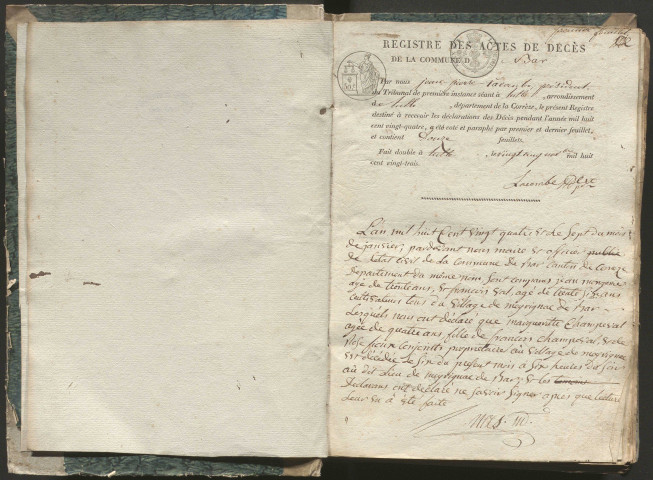 premier feuillet
REGISTRE DES ACTES DE DÉCÈS
DE LA COMMUNE D Bar
Par nous président
du Tribunal de première instance séant à tulle arrondissement
de tulle département de la Corrèze, le présent Registre
destiné à recevoir les déclarations des Décès pendant l'année mil huit
cent vingt-quatre, a été coté et paraphé par premier et dernier feuillet,
et contient Douze feuillets.
Fait double à tulle mil huit
cent vingt-trois.
Lacombe
L'an mil huit Cent vingt quatre et le Sept du mois
de janvier, pardevant nous maire et officier public
de l'état civil de la Commune de Bar Canton de Coreze
departement du même nom, sont comparus jean
agé de trente ans, et francois agé de trente ans
Cultivateurs tous du village de meyrignac de Bar
Lesquels nous ont déclaré que marguerite Champeval
agée de quatre ans fille de francois Champeval, et de
conjoints proprietaire au village de meyrignac
est décédée le Six du present mois a Six heures du Soir
au dit Lieu de meyrignac de Bar, et les temoins
Declarans ont declaré ne savoir Signer apres que lecture
Leur en a été faite